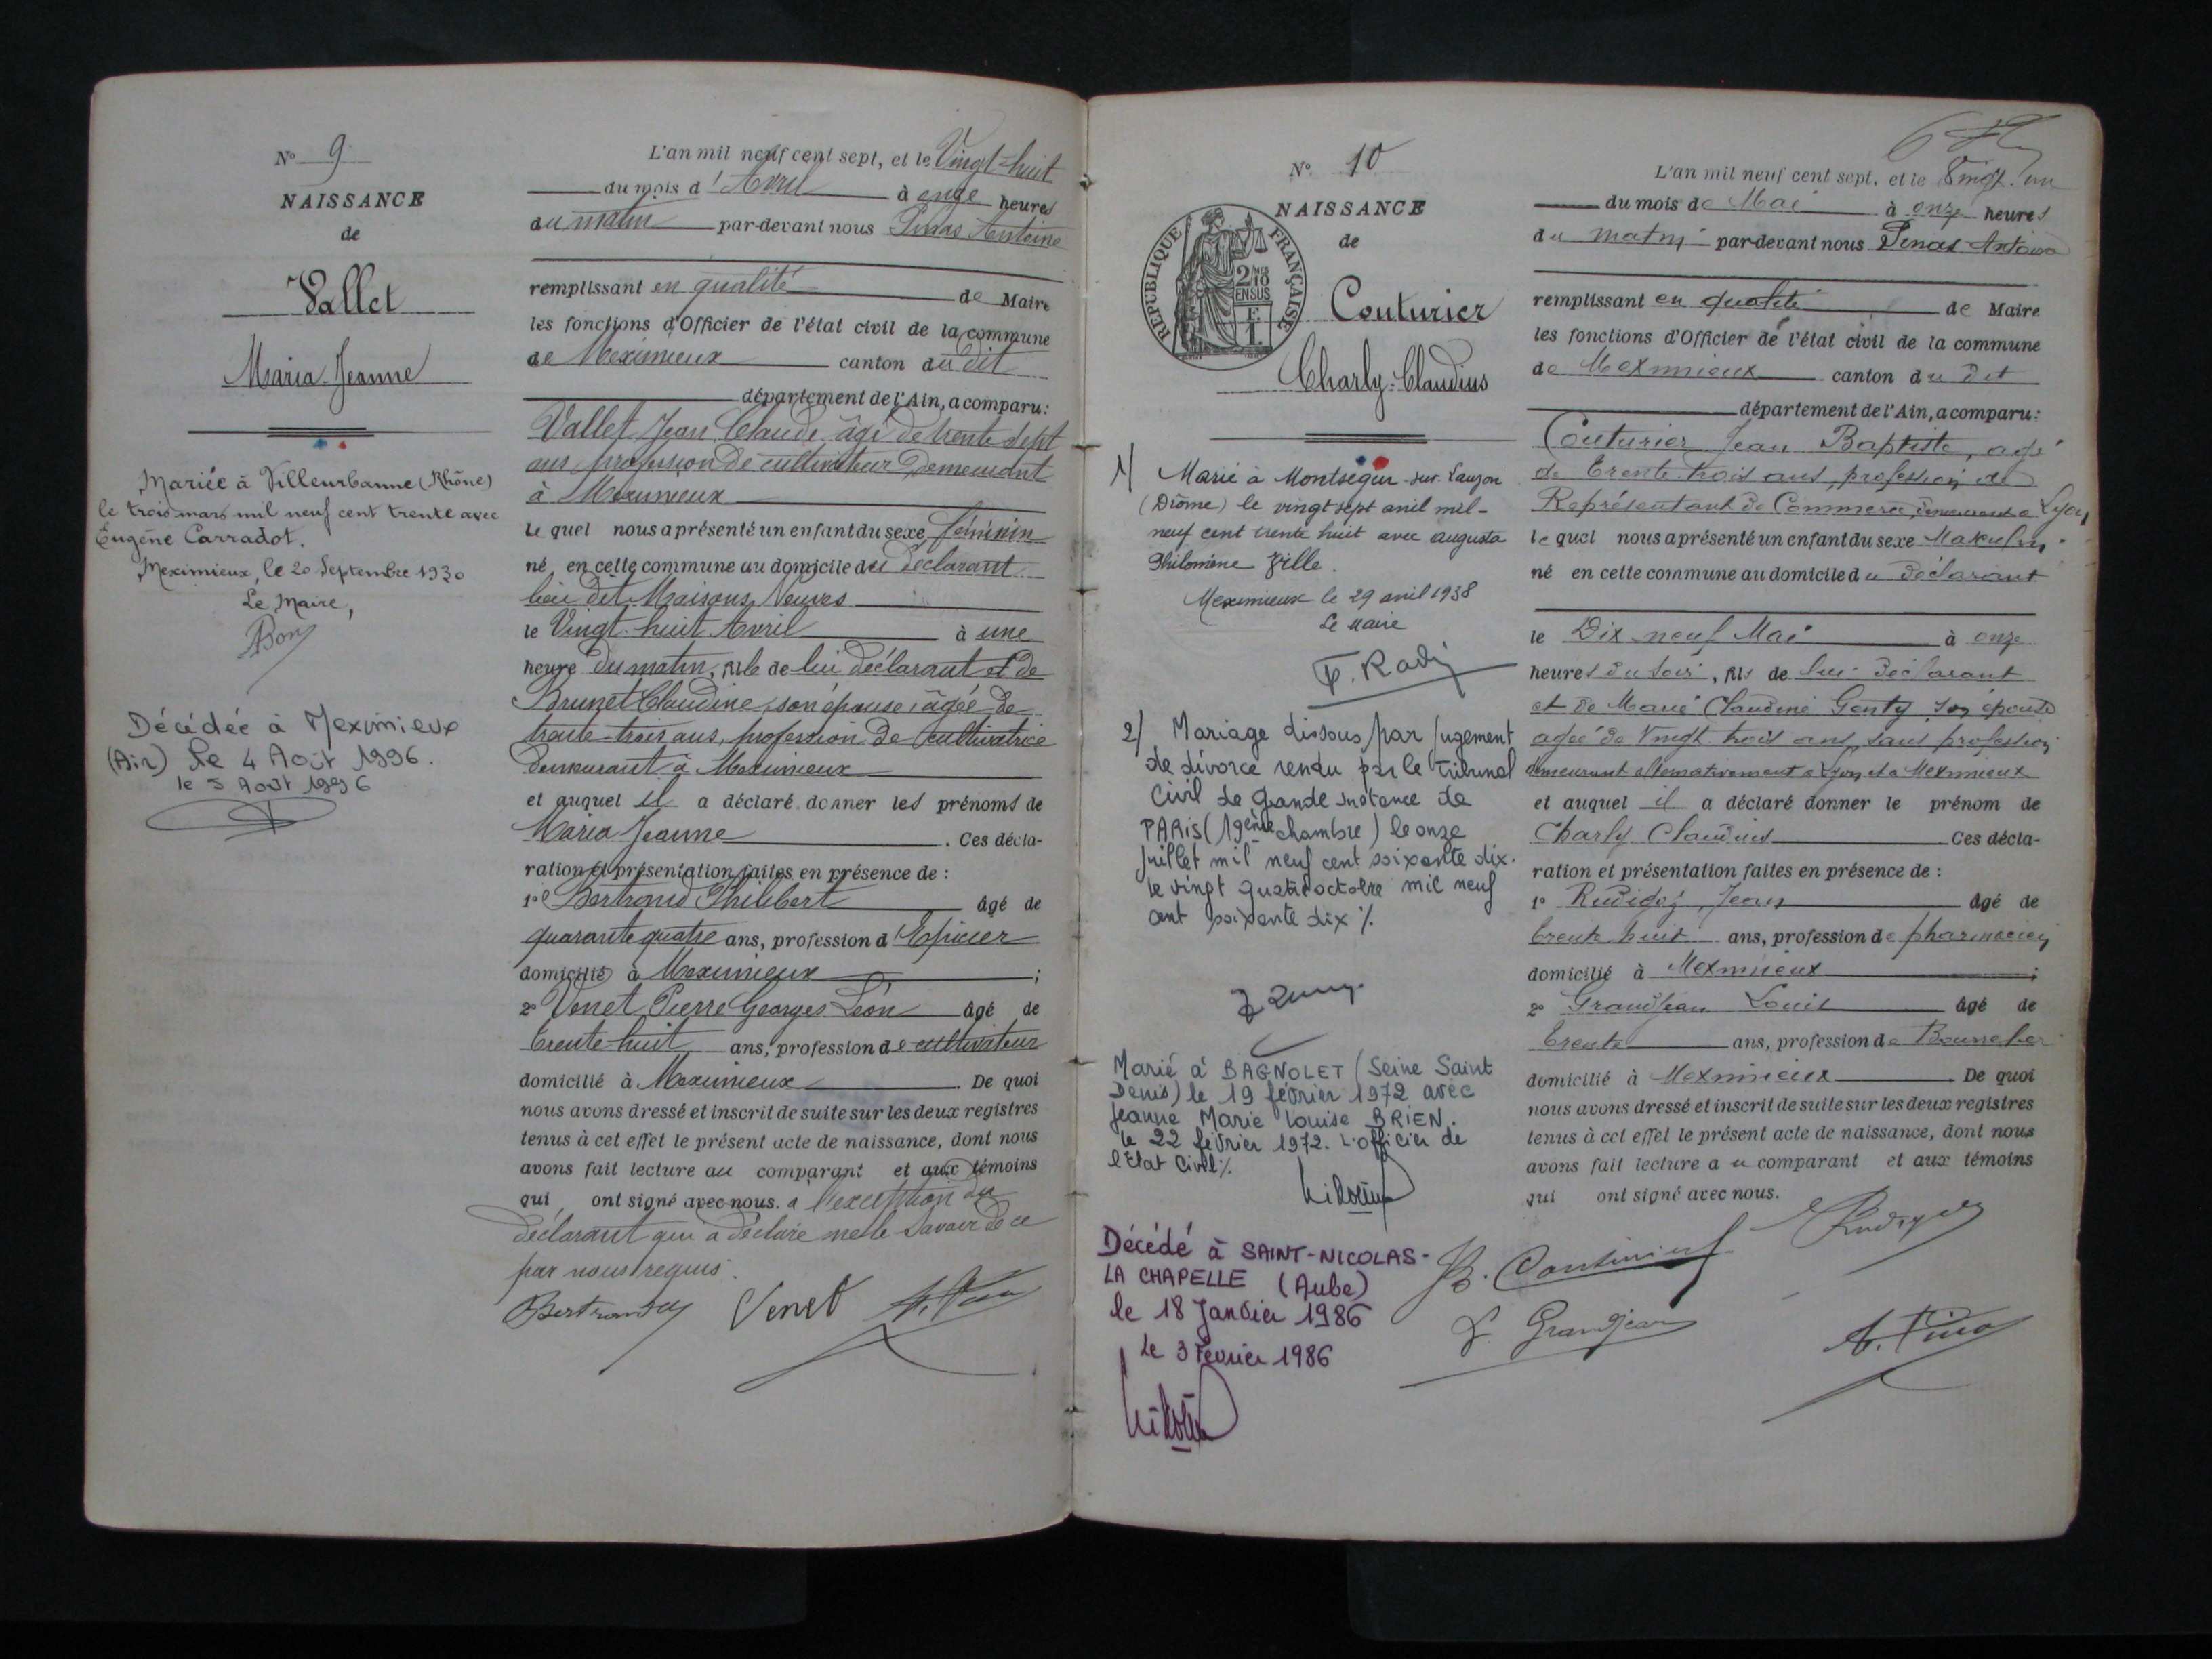 N° 9
NAISSANCE
de
Vallet
Maria-Jeanne
Mariée à Villeurbanne (Rhône)
le trois mars mil neuf cent trente avec
Eugène Carradot.
Meximieux, le 20 Septembre 1930
Le Maire,
Décédée à Meximieux
(Ain) le 4 Août 1996.
le 5 Août 1996
L'an mil neuf cent sept, et le Vingt-huit
du mois d'Avril à onze heures
du matin par-devant nous Penas Antoine
remplissant en qualité de Maire
les fonctions d'Officier de l'état civil de la commune
de Meximieux canton du dit
département de l'Ain, a comparu:
Vallet Jean Claude âgé de trente sept
ans, profession de cultivateur demeurant
à Meximieux
Le quel nous a présenté un enfant du sexe féminin
né, en cette commune au domicile du déclarant
lieu dit Maisons Neuves
le Vingt-huit Avril à une
heure du matin, fille de lui déclarant et de
Brunet Claudine, son épouse, âgée de
trente-trois ans, profession de cultivatrice
demeurant à Meximieux
et auquel il a déclaré donner les prénoms de
Maria Jeanne. Ces décla-
ration et présentation faites en présence de :
1° Bertrand Philibert âgé de
quarante quatre ans, profession d'Epicier
domicilié à Meximieux ;
2° Venet Pierre Georges Léon âgé de
trente-huit ans, profession de cultivateur
domicilié à Meximieux. De quoi
nous avons dressé et inscrit de suite sur les deux registres
tenus à cet effet le présent acte de naissance, dont nous
avons fait lecture au comparant et aux témoins
qui ont signé avec nous. à l'exception du
déclarant qui a déclaré ne le savoir de ce
par nous requis.
Bertrand Venet
N° 10
NAISSANCE
de
RÉPUBLIQUE FRANÇAISE
2/10
EN SUS
Couturier
Charly-Claudius
1/ Marié à Montségur-sur-Lauzon
(Drôme) le vingt sept avril mil-
neuf cent trente huit avec Augusta
Philomène
Meximieux le 29 avril 1938
Le Maire
2/ Mariage dissous par jugement
de divorce rendu par le Tribunal
Civil de Grande Instance de
PARIS (19ème chambre) le onze
juillet mil neuf cent soixante dix.
le vingt quatre octobre mil neuf
cent soixante dix %.
Marié à BAGNOLET (Seine Saint
Denis) le 19 février 1972 avec
Jeanne Marie Louise BRIEN.
le 22 février 1972. L'officier de
l'Etat Civil %.
Décédé à SAINT-NICOLAS-
LA CHAPELLE (Aube)
le 18 Janvier 1986
le 3 Février 1986
L'an mil neuf cent sept, et le Vingt-un
du mois de Mai à onze heures
du matin par-devant nous Penas Antoine
remplissant en qualité de Maire
les fonctions d'Officier de l'état civil de la commune
de Meximieux canton du dit
département de l'Ain, a comparu:
Couturier Jean Baptiste, agé
de trente trois ans, profession de
Représentant de Commerce, demeurant à Lyon
le quel nous a présenté un enfant du sexe Masculin
né en cette commune au domicile du déclarant
le Dix neuf Mai à onze
heures du soir, fils de lui déclarant
et de Marie Claudine Genty, son épouse
agée de Vingt trois ans, sans profession
demeurant alternativement à Lyon et à Meximieux
et auquel il a déclaré donner le prénom de
Charly Claudius Ces décla-
ration et présentation faites en présence de :
1° Rudigoz Jean âgé de
trente huit ans, profession de pharmacien
domicilié à Meximieux ;
2° Grandjean Louis âgé de
trente ans, profession de Bourrelier
domicilié à Meximieux. De quoi
nous avons dressé et inscrit de suite sur les deux registres
tenus à cet effet le présent acte de naissance, dont nous
avons fait lecture au comparant et aux témoins
qui ont signé avec nous.
Rudigoz
B. Couturier
L. Grandjean